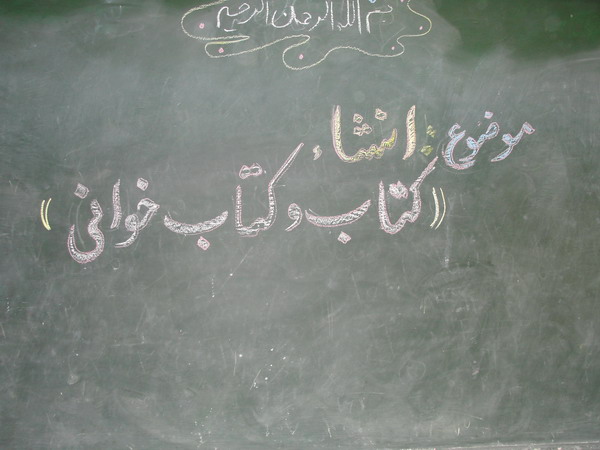 بسم الله الرحمن الرحیم
موضوع: انشاء
(( کتاب و کتاب خوانی ))